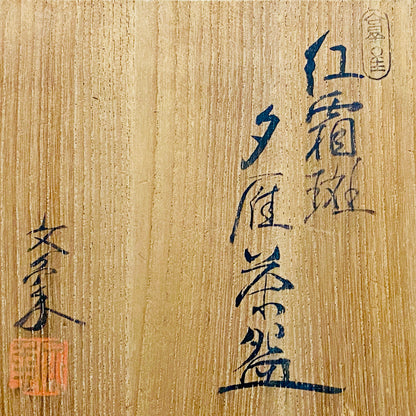 紅霜斑
夕雁茶盌
文